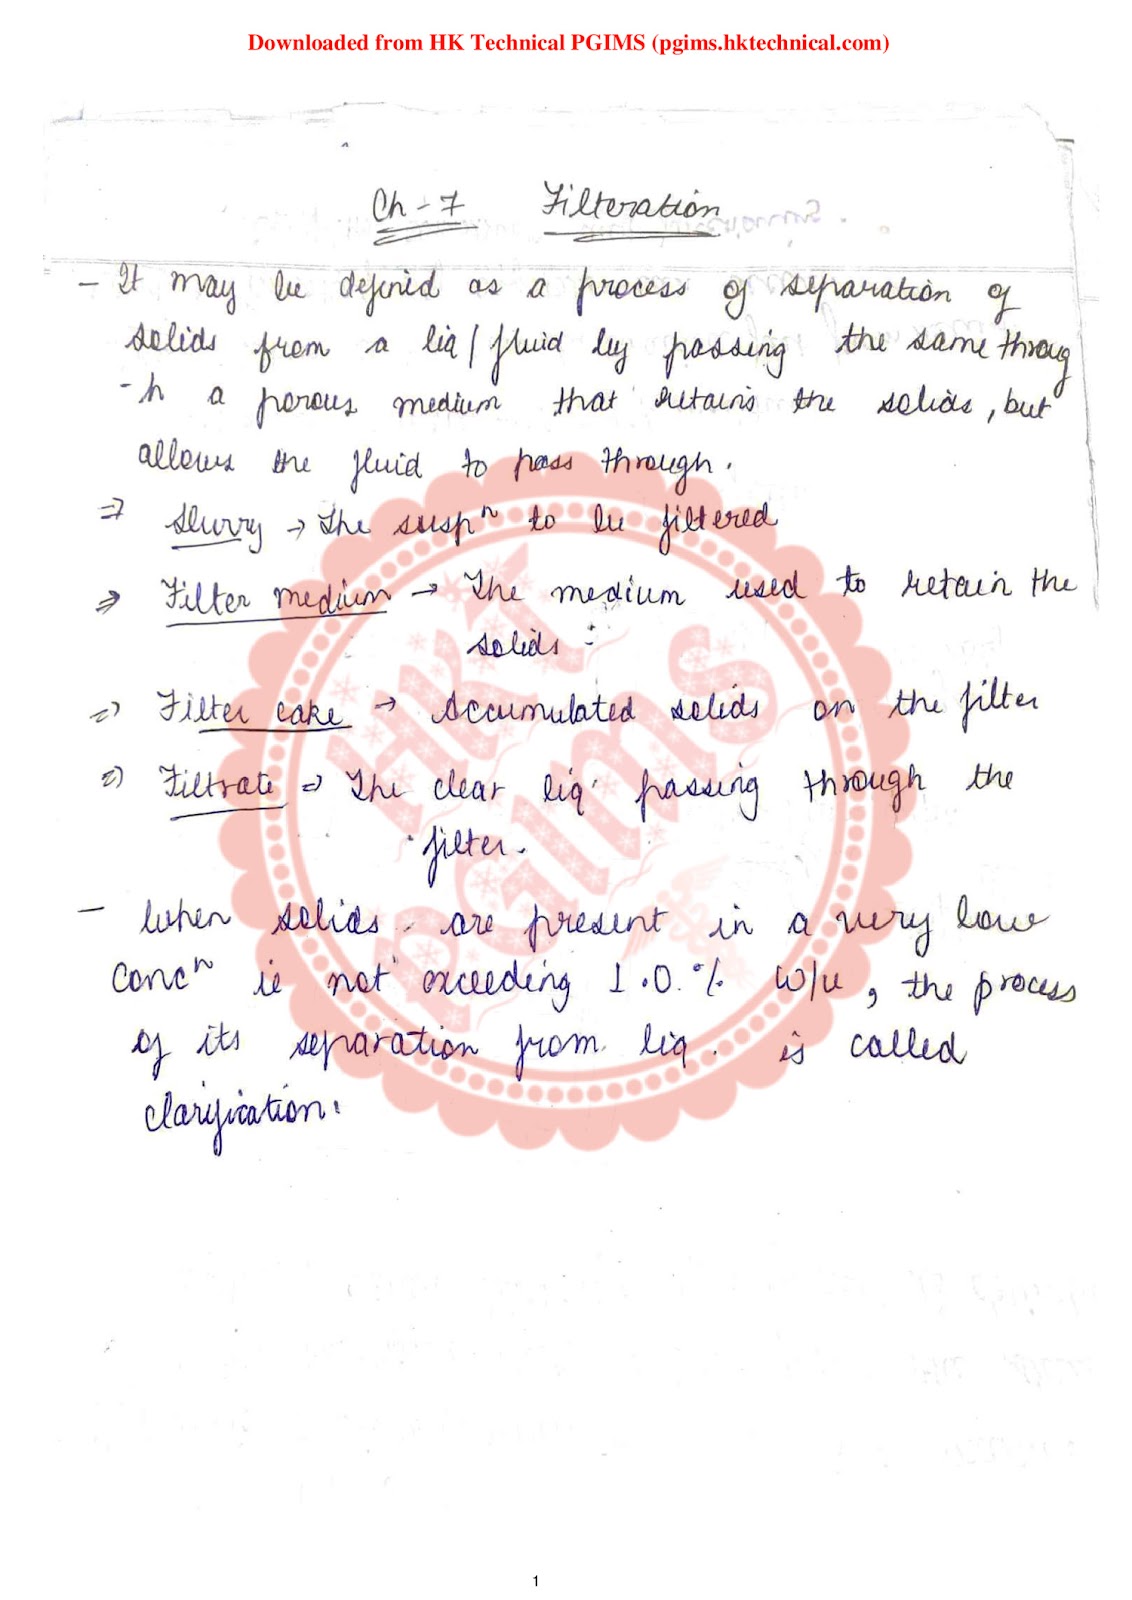 Downloaded from HK Technical PGIMS (pgims.hktechnical.com)
Ch - 7 Filteration
- It may be defined as a process of separation of
solids from a liq / fluid by passing the same throug
-h a porous medium that retains the solids, but
allows the fluid to pass through.
⇒ Slurry → The suspⁿ to be filtered
⇒ Filter medium → The medium used to retain the
solids :
⇒ Filter cake → Accumulated solids on the filter
⇒ Filtrate ⇒ The clear liq. passing through the
filter.
- When solids are present in a very low
concⁿ ie not exceeding 1.0.% w/v, the process
of its separation from liq. is called
clarification.
HKT
PGIMS
1